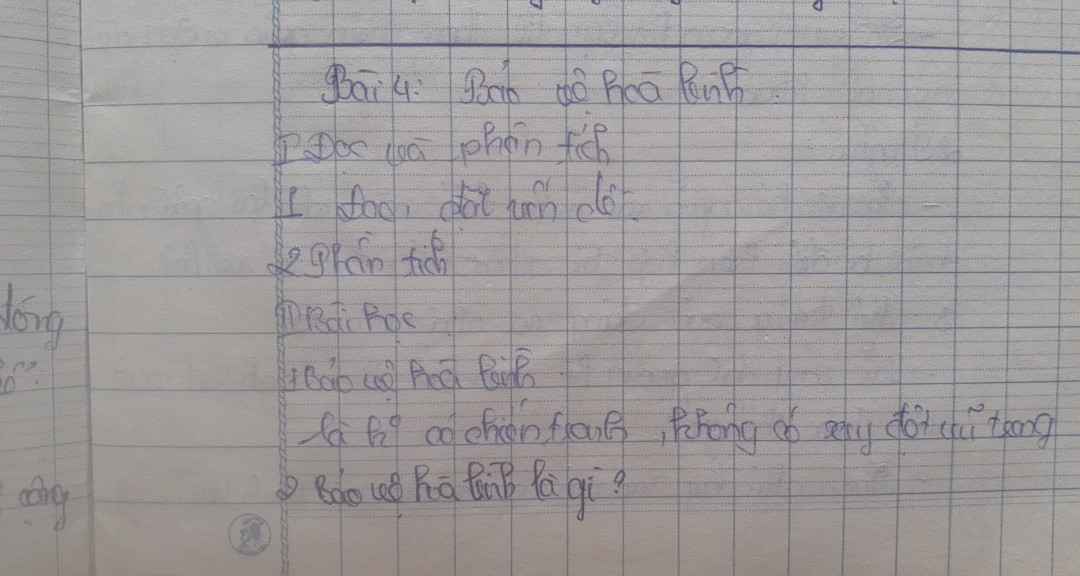 Bài 4: Bảo vệ hoà bình.
I Đọc và phân tích
1 Đọc, đặt vấn đề.
2 Phân tích
II Bài học
1 Bảo vệ hoà bình
là k° có chiến tranh, không có xung đột vũ trang
2 Bảo vệ hoà bình là gì?
động
công